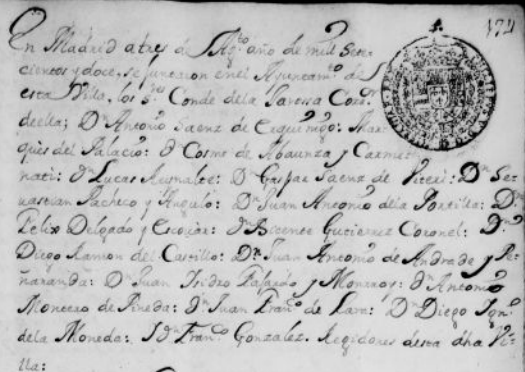 174
En Madrid a tres de Agto año de mill Sete=
cientos y doce, se juntaron en el Ayuntamto de
esta Villa, los Sres Conde de la Jarossa Corr
della; Dn Antonio Saenz de: Mar
qués del Palacio: Dn Cosme de Abaunza y
Dn Lucas Reynalte: Dn Gaspar Saenz de Viteri: Dn Se
uastian Pacheco y Angulo: Dn Juan Antonio de la Portilla: Dn
Felix Delgado y: Dn Bicente Gutierrez Coronel: Dn
Diego Ramon del Castillo: Dn Juan Antonio de Andrade y Pe
ñaranda: Dn Juan Isidro Faxardo y Monrroy: Dn Antonio
Montero de Pineda: Dn Juan Franco de Lara: Dn Diego Ign
de la Moneda: Y Dn Franco Gonzalez. Regidores desta dha Vi=
lla: